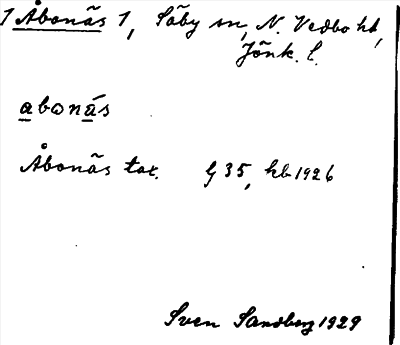 1 Åbonäs 1, Säby sn, N. Vedbo hd,
Jönk. l.
abonäs
Åbonäs tax. G 35, hb 1926
Sven Sandberg 1929